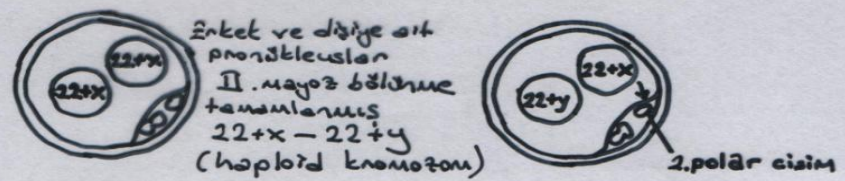 22+x
22+x
Erket ve dişiye ait
pronükleuslar
II. mayoz bölünme
tamamlanmış
22+x – 22+y
(haploid kromozom)
22+x
22+y
2.polar cisim